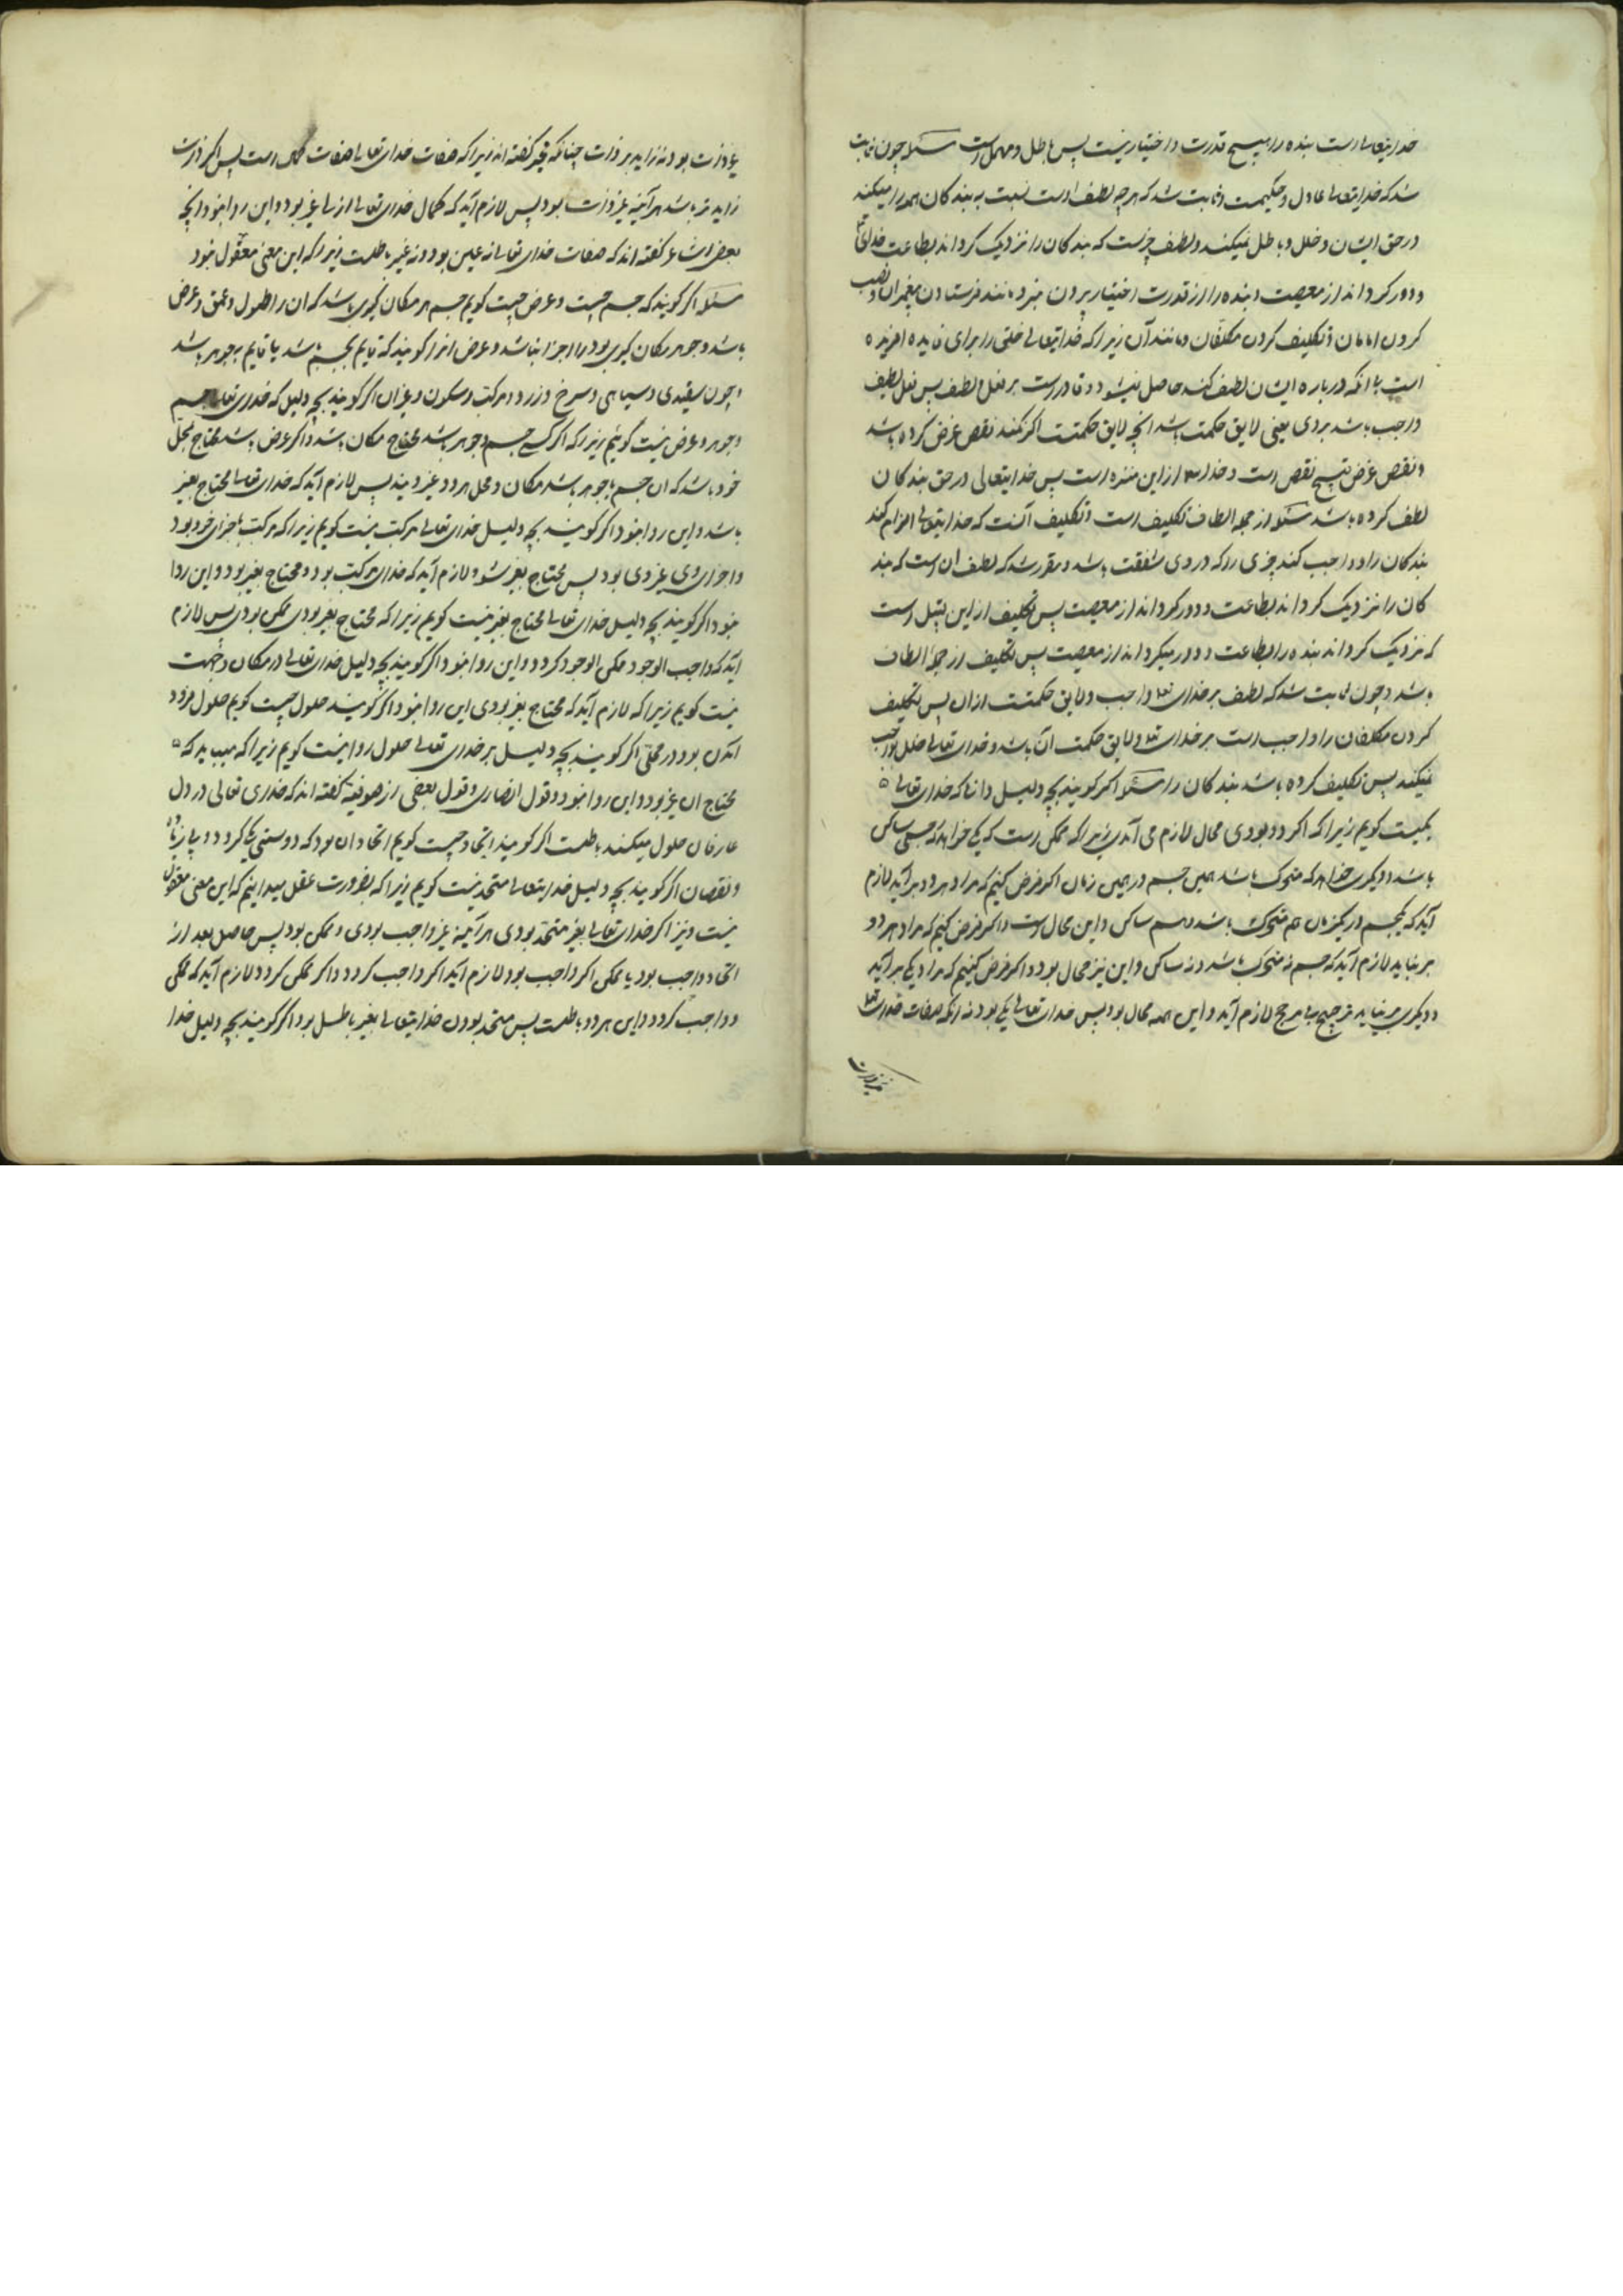 خدایتعالی است بنده را هیچ قدرت و اختیار نیست پس باطل و مهمل است مسئله چون ثابت
شد که خدایتعالی عادل و حکیمست و ثابت شد که هر چه لطف است نسبت به بندکان همه را میکند
در حق ایشان و خلل و باطل نمیکند و لطف چیزیست که بندکان را نزدیک کرداند بطاعت خدای تعا
و دور کرداند از معصیت و بنده را از قدرت اختیار بیرون نبرد مانند فرستادن پیغمبران و نصب
کردن امامان و تکلیف کردن مکلفان و مانند آن زیرا که خدایتعالی خلق را برای فایده افریده
است با انکه درباره ایشان لطف نکند حاصل نمیشود و قادرست بر فعل لطف پس فعل لطف
واجب باشد بر وی یعنی لایق حکمت باشد انچه لایق حکمتست اکر نکند نقص غرض کرده باشد
و نقص غرض قبیح نقص است و خدای از این منزه است پس خدایتعالی در حق بندکان
لطف کرده باشد مسئله از جمله الطاف تکلیف است و تکلیف آنست که خدایتعالی الزام کند
بندکان را و واجب کند چیزی را که در وی مشقت باشد و مقرر شد که لطف ان است که بند
کان را نزدیک کرداند بطاعت و دور کرداند از معصیت پس تکلیف از این قبیل است
که نزدیک کرداند بنده را بطاعت و دور میکرداند از معصیت پس تکلیف از جمله الطاف
باشد و چون ثابت شد که لطف بر خدای تعا واجب و لایق حکمتست از ان پس تکلیف
کردن مکلفان را واجب است بر خدای تعا و لایق حکمت آن باشد و خدای تعالی خلل بواجب
نمیکند پس تکلیف کرده باشد بندکان را مسئله اکر کویند بچه دلیل دانی که خدای تعالی
یکیست کویم زیرا که اکر دو بودی محال لازم می آمدی زیرا که ممکن است که یکی خواهد که جسمی ساکن
باشد و دیکری خواهد که متحرک باشد همین جسم در همین زمان اکر فرض کنیم که مراد هر دو بر آید لازم
آید که یکجسم در یکزمان هم متحرک باشد و هم ساکن و این محال است و اکر فرض کنیم که مراد هر دو
بر نیاید لازم آید که جسم نه متحرک باشد و نه ساکن و این نیز محال بود و اکر فرض کنیم که مراد یکی بر آید
و دیکری بر نیاید ترجیح بلا مرجح لازم آید و این همه محال بود پس خدای تعالی یکی بود نه انکه صفات خدای تعا
غیر ذات
غیر ذات بود نه زاید بر ذات چنانکه غیر کفته اند زیرا که صفات خدای تعالی صفات کمال است پس اکر ذات
زاید تر باشد هر آینه غیر ذات بود پس لازم آید که کمال خدای تعالی از غیر بود و این روا نبود و انچه
بعضی اشاعره کفته اند که صفات خدای تعالی نه عین بود و نه غیر باطلست زیرا که این معنی معقول نبود
مسئله اکر کویند که جسم چیست و عرض چیست کویم جسم هر مکان کیری باشد که ان را طول و عمق و عرض
باشد و جوهر مکان کیری بود را اجزا نباشد و عرض انرا کویند که قایم بجسم باشد یا قایم بجوهر باشد
و چون سفیدی و سیاهی و سرخ و زرد و حرکت و سکون و غیران اکر کویند بچه دلیل که خدای تعالی جسم
و جوهر و عرض نیست کویم زیرا که اکر جسم و جوهر باشد محتاج مکان باشد و اکر عرض باشد محتاج بمحل
خود باشد که ان جسم یا جوهر باشد مکان و محل هر دو غیر ویند پس لازم آید که خدای تعالی محتاج بغیر
باشد و این روا نبود اکر کویند بچه دلیل خدای تعالی مرکب نیست کویم زیرا که مرکب باجزای خود بود
و اجزای وی غیر وی بود پس محتاج بغیر شود و لازم آید که خدای مرکب بود و محتاج بغیر بود و این روا
نبود اکر کویند بچه دلیل خدای تعالی محتاج بغیر نیست کویم زیرا که محتاج بغیر بودی ممکن بودی پس لازم
اید که واجب الوجود ممکن الوجود کردد و این روا نبود اکر کویند بچه دلیل خدای تعالی در مکان و جهت
نیست کویم زیرا که لازم آید که محتاج بغیر بودی این روا نبود اکر کویند حلول چیست کویم حلول فرود
امدن بود در محلی اکر کویند بچه دلیل بر خدای تعالی حلول روا نیست کویم زیرا که میباید که
محتاج ان غیر بود و این روا نبود و قول نصاری و قول بعضی از صوفیه کفته اند که خدای تعالی در دل
عارفان حلول میکند باطلست اکر کویند اتحاد چیست کویم اتحاد ان بود که دو شیئی یکی کردد بی زیاده
و نقصان اکر کویند بچه دلیل خدایتعالی متحد نیست کویم زیرا که بضرورت عقل میدانیم که این معنی معقول
نیست و نیز اکر خدای تعالی بغیر متحد بودی هر آینه غیر واجب بودی و ممکن بود پس حاصل بعد از
اتحاد واجب بود یا ممکن اکر واجب بود لازم آید اکر واجب کردد و اکر ممکن کردد لازم آید که ممکن
و واجب کردد و این هر دو باطلست پس متحد بودن خدایتعالی بغیر باطل بود اکر کویند بچه دلیل خدا